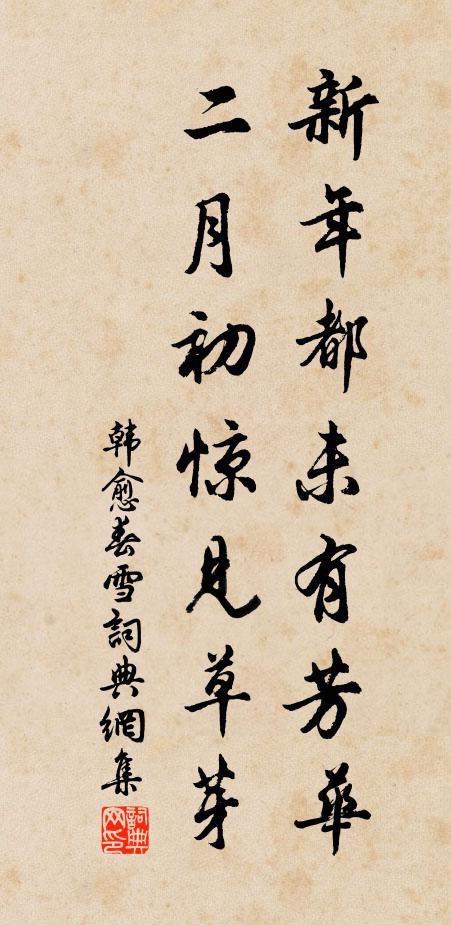 新年都未有芳華
二月初惊見草芽
韓愈春雪詞典網集
詞典
网印